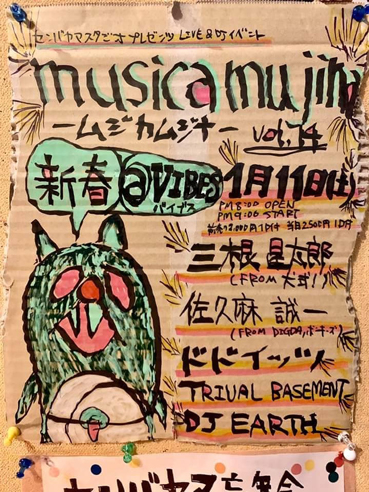 センバヤマスタヂオプレゼンツ LIVE&DJイベント
musica mujina
ームジカムジナー vol.14
新春@VIBES
バイブス
1月11日(土)
PM8:00 OPEN
PM9:00 START
前売2000円1D付 当日2500円1D付
三根星太郎
(FROM 犬式)
佐久麻 誠一
(FROM DIGDA, ボーチーズ)
ドドイッツ
TRIVAL BASEMENT
DJ EARTH
センバヤマ忘年会